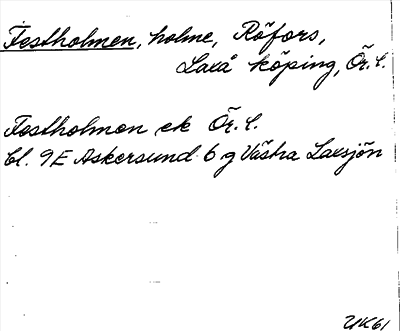 Festholmen, holme, Röfors,
Laxå köping, Ör. l.
Festholmen ek Ör. l.
bl. 9E Askersund 6 g Västra Laxsjön
UK61